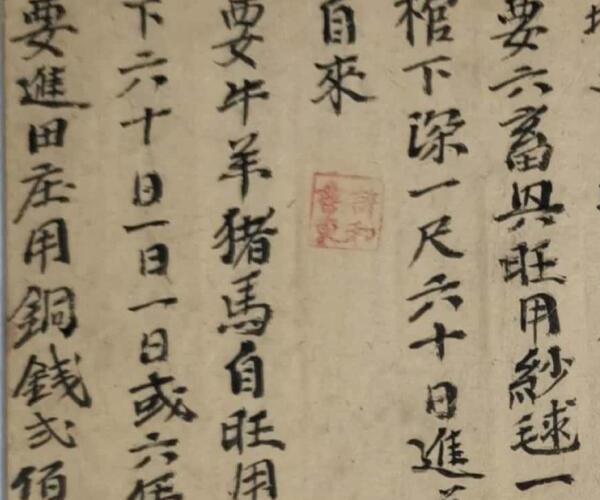 要六畜興旺用紗毬一
棺下深一尺六十日進
自來
要牛羊猪馬自旺用
下六十日一日一日或六
要進田庄用銅錢弍佰